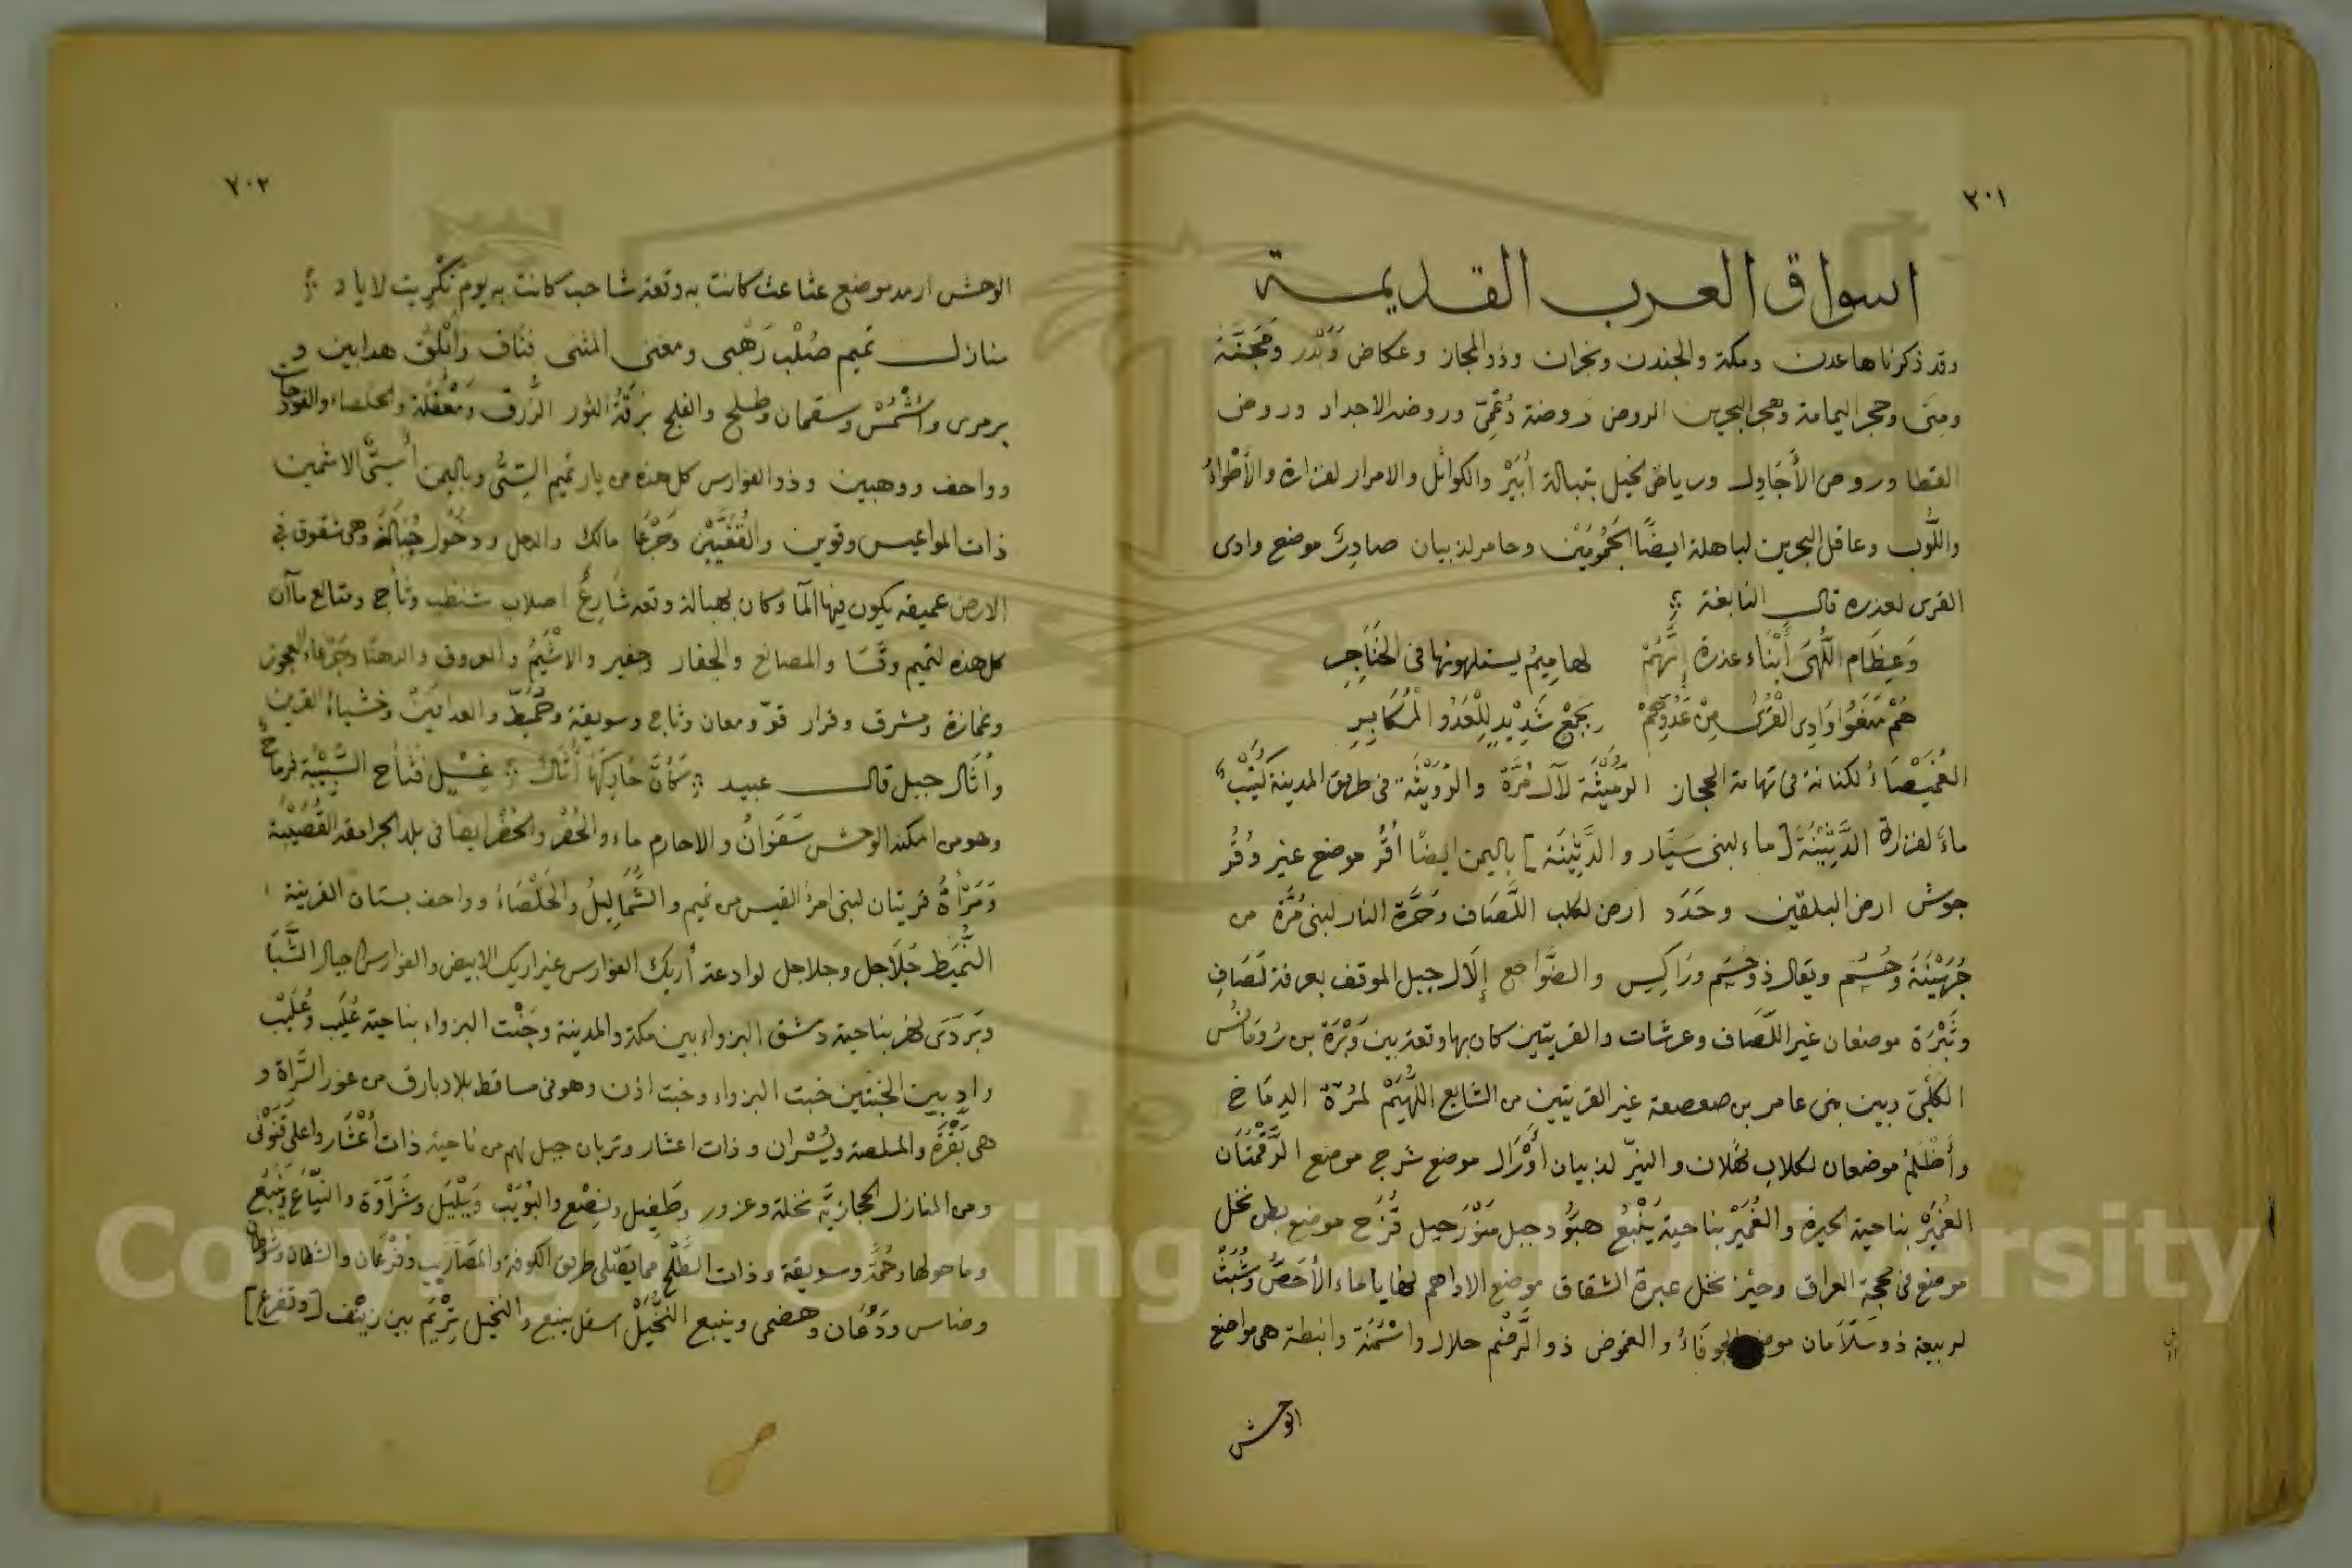 ٣٠١
اسواق العرب القديمة
وقد ذكرناها عدن ومكة والجند ونجران وذو المجاز وعكاض وَبَدْر وَمَجَنَّة
ومِنَى وحجر اليمامة وهجر البحرين الروض روضة دُعْمِىّ وروضه الأجداد وروض
القطا وروض الأَجَاوِل ورياض الخيل بتبالة أُبَيْر والكواثل والامرار لفزارة والأظواءُ
واللُّوب وعاقل البحرين لباهلة ايضًا الجَمُومَيْن وحامر لذبيان صادِرٌ موضع وادى
القرى لعذره قال النابغة
وَعِظَام اللُّهَى أَبْنَاء عذرة إِنَّهُمْ لهامِيمُ يستلهونها فى الحَنَاجِرِ
هُمُ مَنَعُوا وَادِى القُرَى مِنْ عَدُوِّهِمْ بجَمْعٍ شَدِيْدٍ لِلْعَدُو المُكَابِرِ
الغُمَيْصَاءُ لكنانة فى تهامة الحجاز الرُّمَيْثَة لآل مُرَّة والرُّوَيْثَة فى طريق المدينة كُتَيْبٌ
ماءَ لفزارة الدَّثِيْنَةُ [ماء لبنى سَيَّار والدَّثِيْنَة] باليمن ايضًا أُقُرُ موضع غير وُقُر
جوش ارض البلقين وحَدَد ارض لكلب اللَّصَاف وحَرَّة النار لبنى مُرَّة من
جُهَيْنَةَ وحُسُم ويقال ذو حُسَم ورَاكِس والضَّواجع إلَال جبل الموقف بعرفة لَصَافِ
وثَبْرَة موضعان غير اللَّصَاف وعرشات والقريتين كان بها وقعة بين وَبْرَة بن رُومَانُس
الكَلْبِىّ وبين بنى عامر بن صعصعة غير القريتين من الشايع اللُّهَيْمُ لمُرّة الدِمَاخ
وأظْلَمُ موضعان لكلاب نملان والنِيرّ لذبيان أَوْرَال موضع شرج موضع الرَّقْمَتَان
الغُمَيْرُ بناحية الحيرة والغُمَيْر بناحية يَنْبُعُ هَبُّود جبل مَنْوَر جبل قُزَح موضع بطن نخل
موضع فى محجة العراق وحيْز نخل عبرة الشقاق موضع الاداهم لخفايا ماء الأَحَصُّ وشُبَيْثٌ
لربيعة ذو سَلَاَمان موضع الجوفاءُ والغموض ذو الرَّضْم حلال واشْمَنَة وانبطة هى مواضع
الوحش
٧٠٢
الوحش ارمد موضع عثاعث كانت به وقعة شاحب كانت به يوم تَكْرِيت لاياد
منازل تميم صُلْب رَهْبى ومعنى المثنى فتَاق وَأَبْلُق هدابين و
يرمرى واشْمُسْ وسقمان وطلح والفلج بُرقَةُ الثور الزُّرق ومَعْقُلَة والخلصاء والفودجات
وواحف ووهبين وذو الفوارس كل هذه من ديار تميم السِتىُّ وباليمن أُستىُّ الاشمين
ذات المواعيس وقوين والقُفَيَّيْن وَجَرْعَا مالك والدحل ودحُول جُنَالَة وهى شقوق فى
الارض عميقه يكون فيها المآ وكان لهبالة وقعه شَارِعُ اصلاب شنظب وثأج ومتالع مآآن
كل هذه لتميم وقَسَا والمصانع والجفار وجفير والاشْيَمُ والعروف والدهنا وجَرْعَاء العجوز
وغمازة ومشرف وقرار قوّ ومعان وثاج وسويقة وخُمَيْط والعداينُ وخشباءُ القرين
وأُثَال جبل قال عبيد كَأَنَّ حَادِيَهَا أُثَالُ غِسْل فثأج السَّبِيَّة فرماحٌ
وهو من امكنه الوحش سَفَوَانُ والاحارم ماء والحُفُر والحُفُر ايضا فى بلد الجرامقه القُصَيْبَة
وَمَرْأَةُ قريتان لبنى امرئ القيس من تميم والشَّمَالِيلُ والخَلْصَاءُ وواحف بستان القرينة
النُّمَيْط جُلَاجل وجلاجل لوادعة أُرَيك الفوارس غير اريك الابيض والفوارس اجبال الشَّبَا
وبَرَدَى نهر بناحية دمشق البزواء بين مكة والمدينة وخَبْت البزواء بناحية عُلَيب وعُلَيْب
وادٍ بين الخبتين خبت البزواء وخبت اذن وهو فى مساقط بلاد بارق من غور السَّرَاة و
هى بَقْرَة والملصة ويُسْران وذات اعشار وتربان جبل لهم من ناحية ذات أَعْشَار واعلى قَنَوْنى
ومن المنازل الحجازيَّة نخلة وعزور وطَفِيل ونِصْع والبُوَيْبُ ويَلْيَل وشَرَاوَة والنيَّاع وينبع
وما حولها وحُمَّة وسويقة وذات الطَّلْح مما يَصْلى طريق الكوفة والمَضَاريب وفُرْعَان والشفان وشوطان
وضاس ودُعَان وهضمى وينبع النُخَيْل اسفل ينبع والنخيل تِرْيَم بين زينْف [وتفرع]